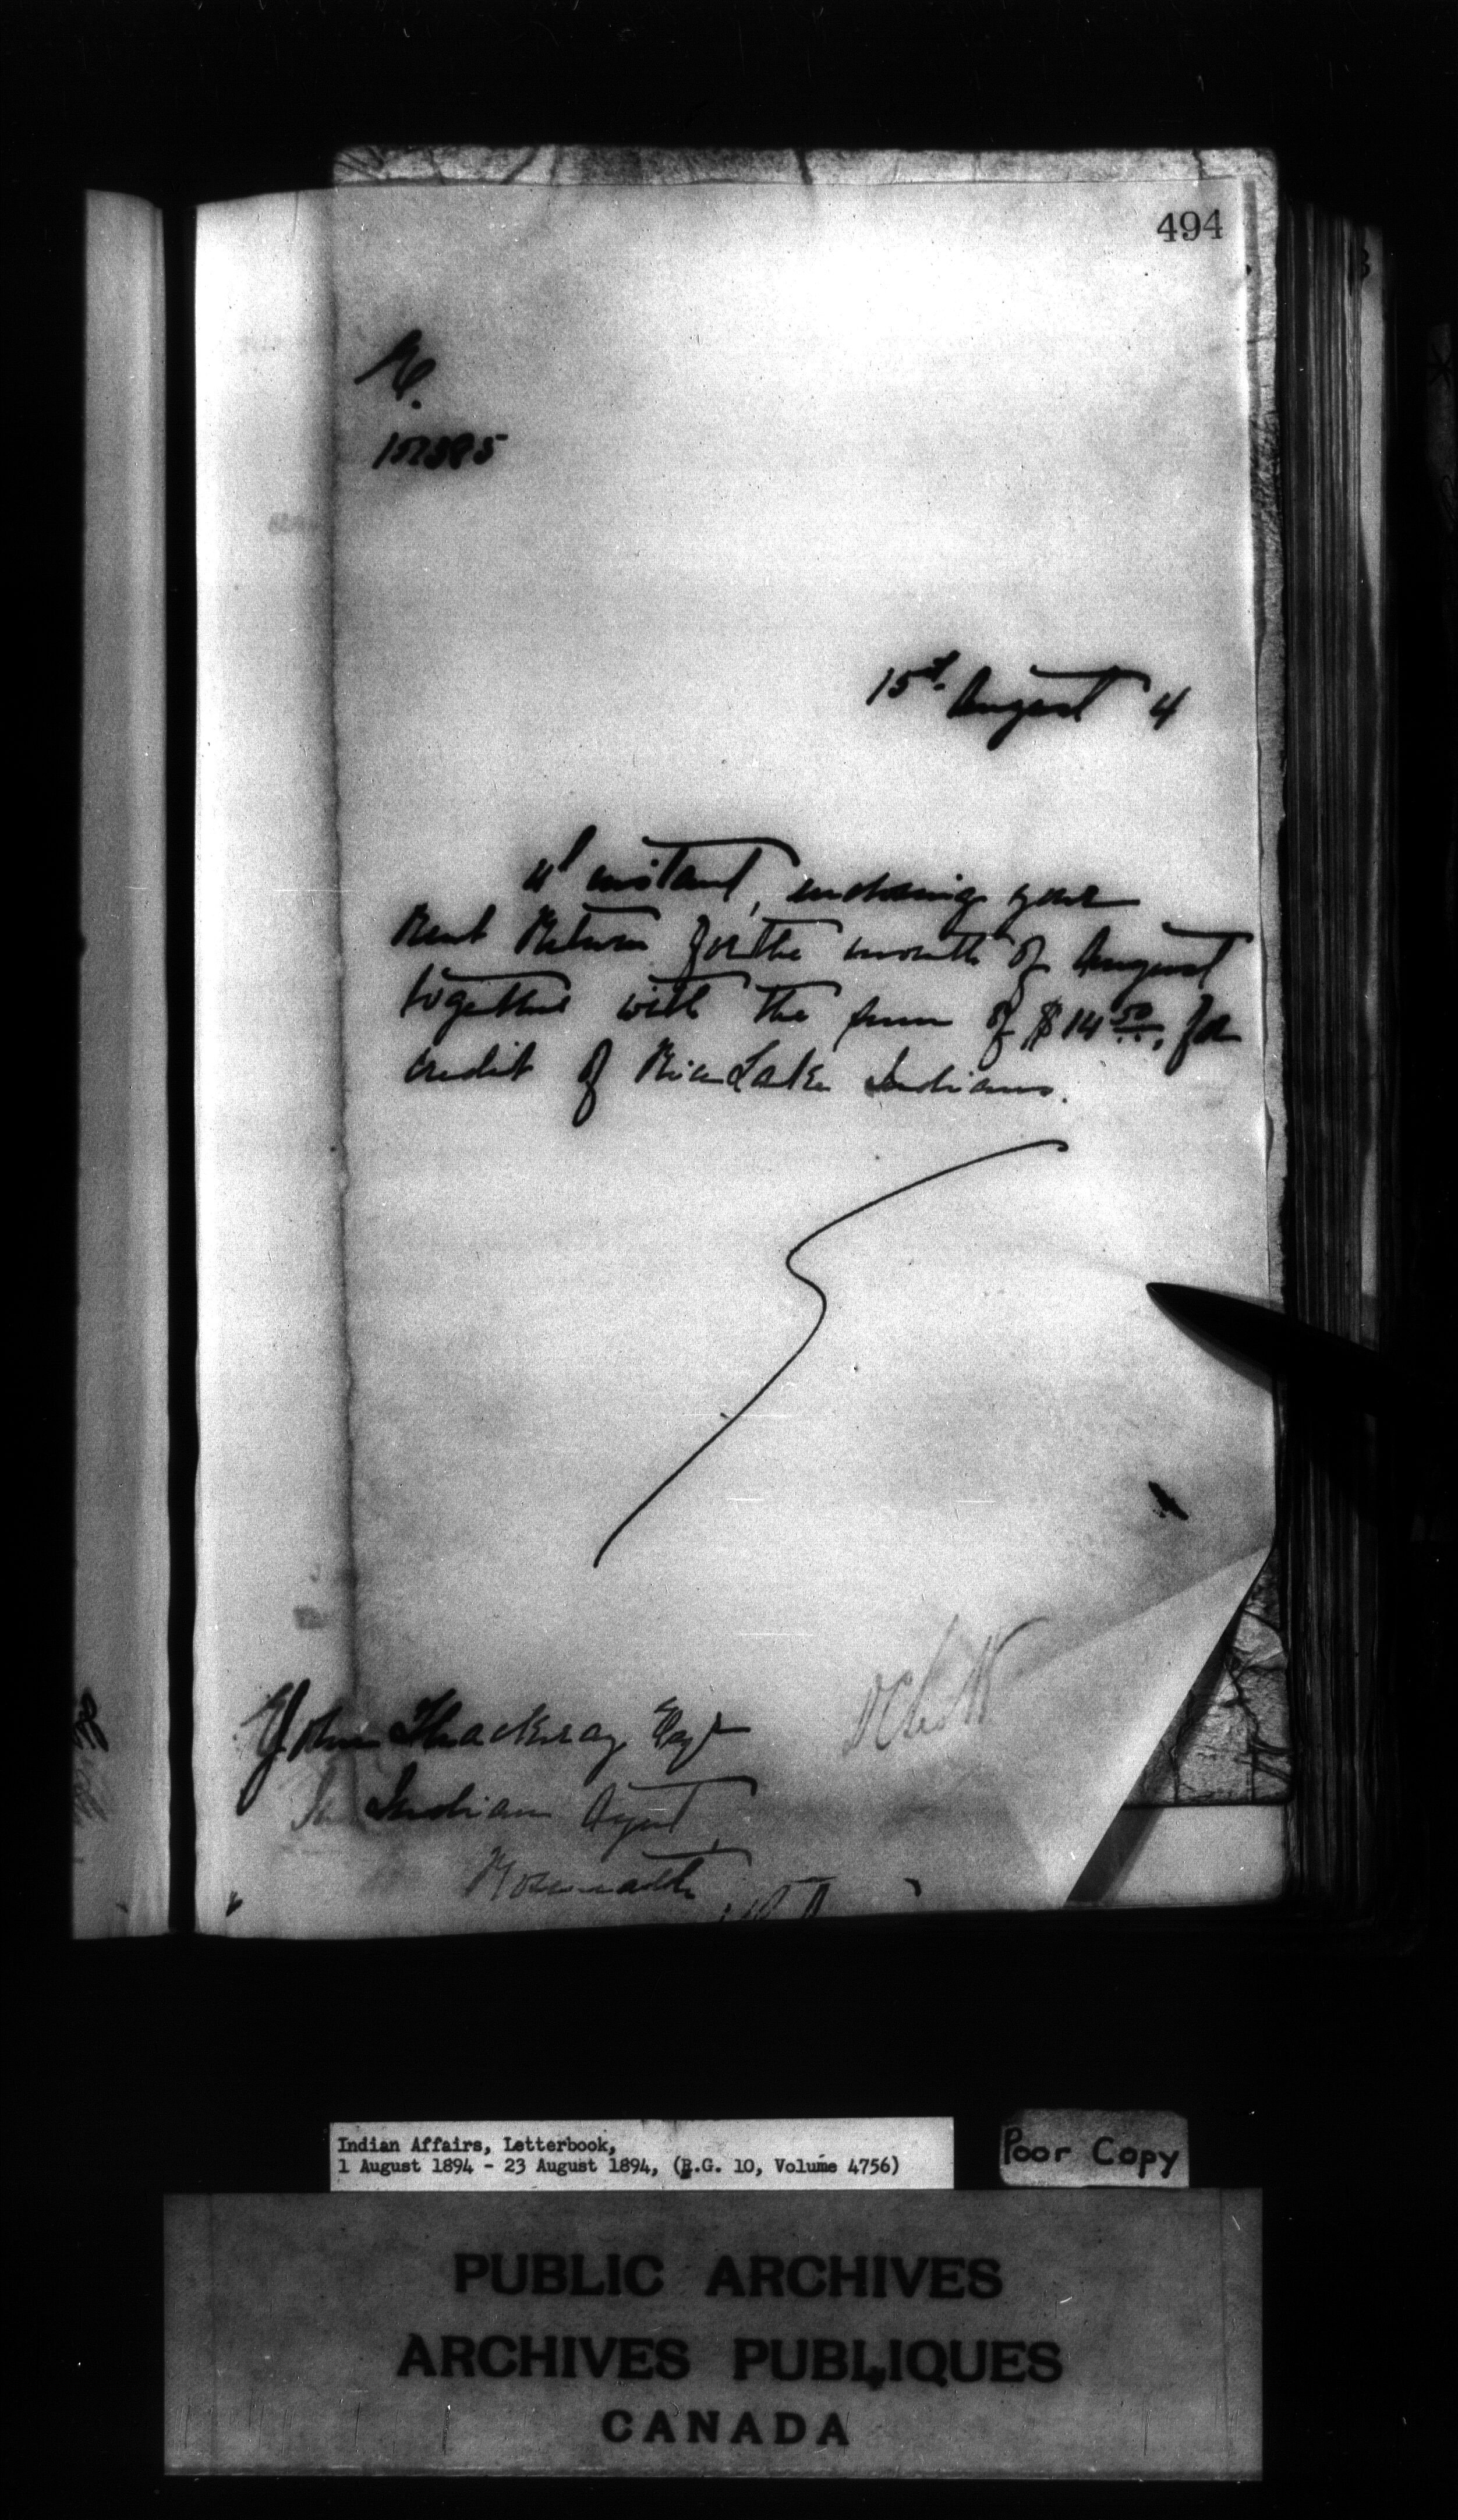 494
152385
15th August 4
instant, enclosing your
Rent Return for the month of August
together with the sum of $14.50, for
credit of Rice Lake Indians.
John Thackeray Esqr
Indian Agent,
Roseneath
Indian Affairs, Letterbook,
1 August 1894 - 23 August 1894, (R.G. 10, Volume 4756)
Poor Copy
PUBLIC ARCHIVES
ARCHIVES PUBLIQUES
CANADA